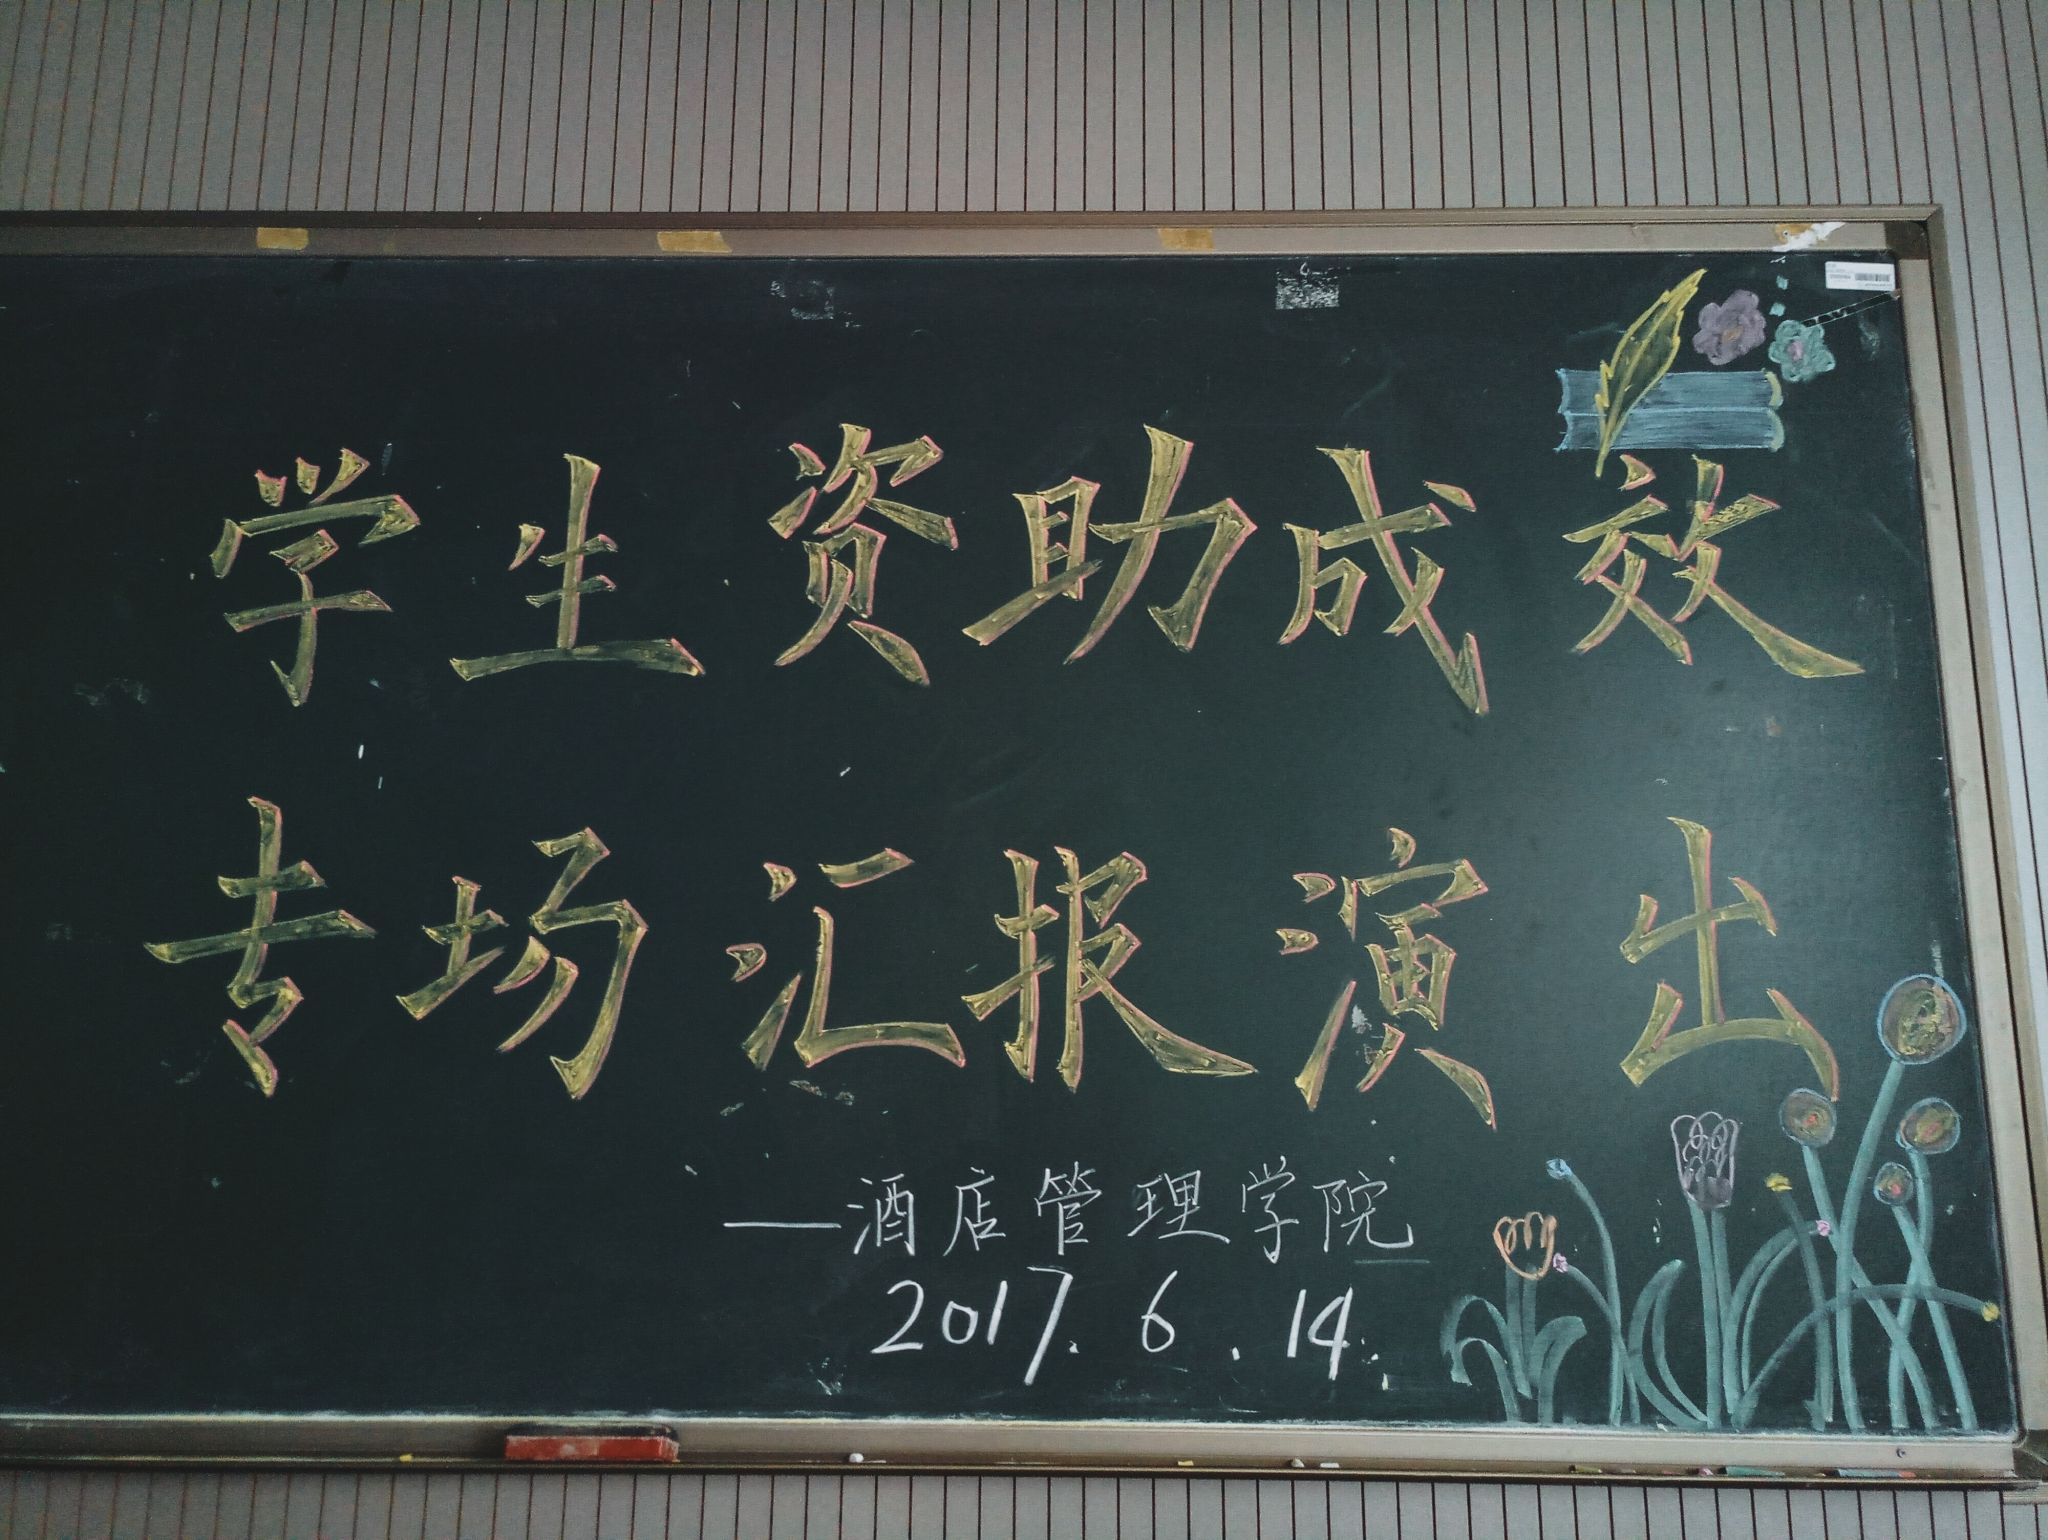 学生资助成效
专场汇报演出
——酒店管理学院
2017.6.14.